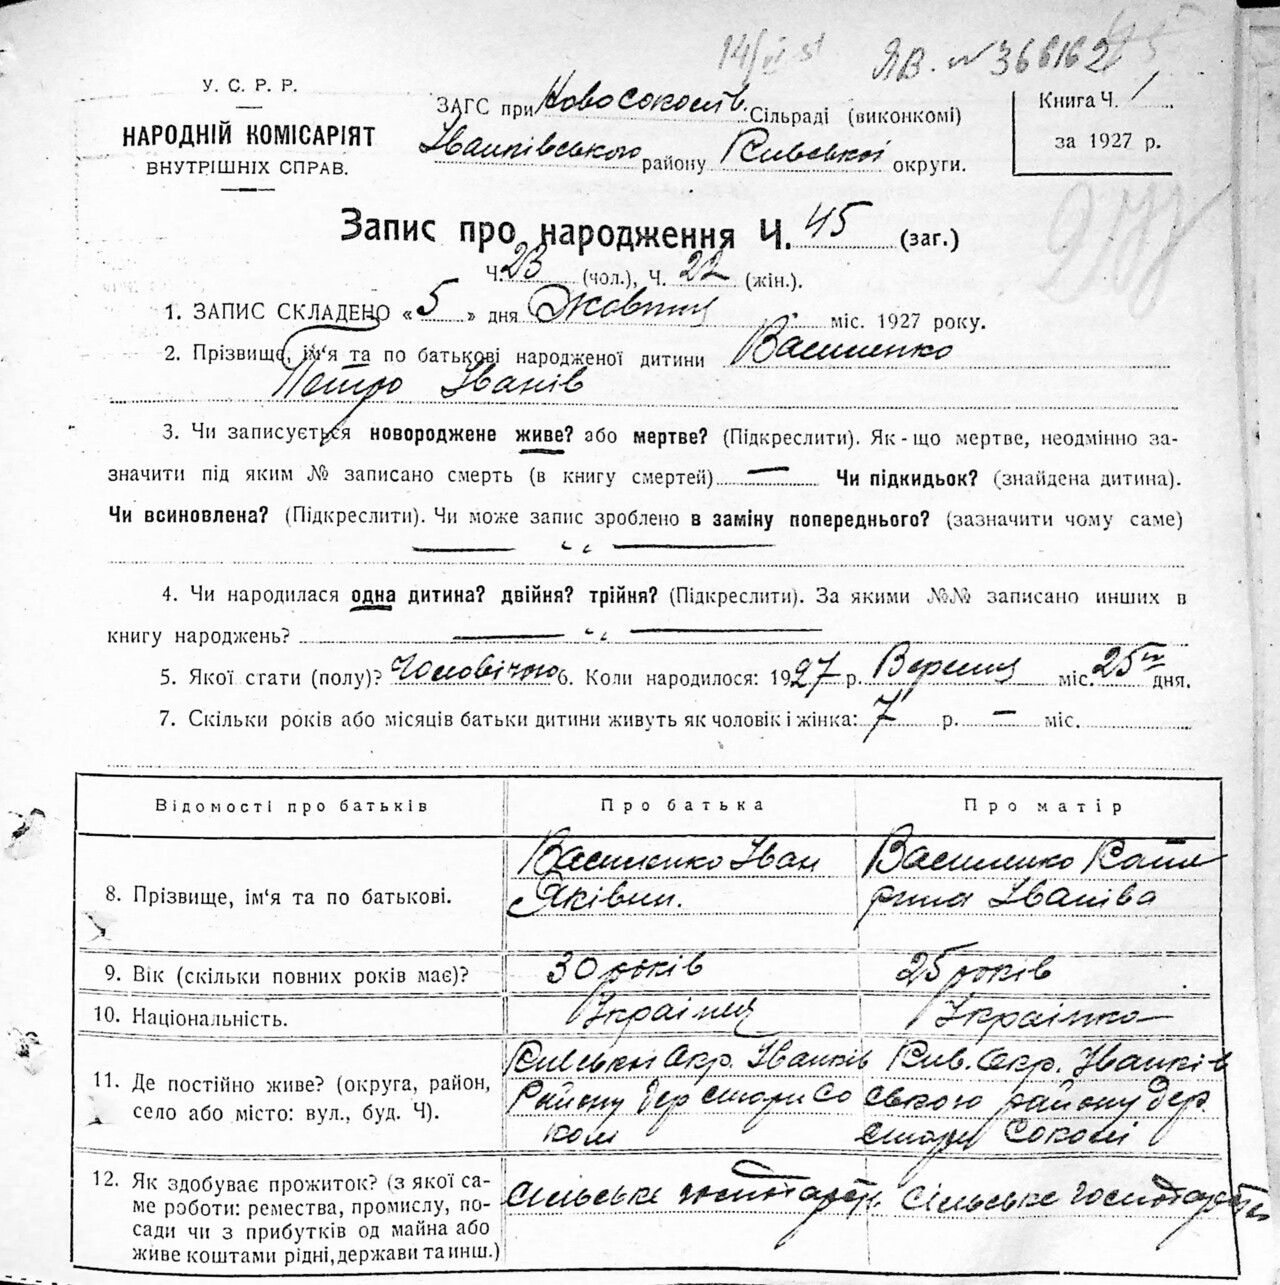 14/VI st ЯВ. № 366162
У. С. Р. Р.
НАРОДНІЙ КОМІСАРІЯТ
ВНУТРІШНІХ СПРАВ.
ЗАГС при Новосоколів. Сільраді (виконкомі)
Іванківського району Київської округи.
Книга Ч. 1
за 1927 р.
Запис про народження Ч. 45 (заг.)
Ч. 23 (чол.), Ч. 22 (жін.).
1. ЗАПИС СКЛАДЕНО «5» дня Жовтня міс. 1927 року.
2. Прізвище, ім‘я та по батькові народженої дитини Василенко
Петро Іванів
3. Чи записується новороджене живе? або мертве? (Підкреслити). Як-що мертве, неодмінно за-
значити під яким № записано смерть (в книгу смертей) — Чи підкидьок? (знайдена дитина).
Чи всиновлена? (Підкреслити). Чи може запис зроблено в заміну попереднього? (зазначити чому саме)
— „ —
4. Чи народилася одна дитина? двійня? трійня? (Підкреслити). За якими №№ записано инших в
книгу народжень? — „ —
5. Якої стати (полу)? Чоловічою 6. Коли народилося: 1927 р. Вересня міс. 25 дня.
7. Скільки років або місяців батьки дитини живуть як чоловік і жінка: 7 р. — міс.
Відомості про батьків Про батька Про матір
8. Прізвище, ім‘я та по батькові. Василенко Іван Василенко Кате
Яківич. рина Іванівa
9. Вік (скільки повних років має)? 30 років 25 років
10. Національність. Українця Українка
11. Де постійно живе? (округа, район, Київської Окр. Іванків Київ. Окр. Іванків
село або місто: вул., буд. Ч). Району дер стари Со ського району дер.
коли стари Соколи
12. Як здобуває прожиток? (з якої са- сільське господарств. Сільське господарств
ме роботи: ремества, промислу, по-
сади чи з прибутків од майна або
живе коштами рідні, держави та инш.)